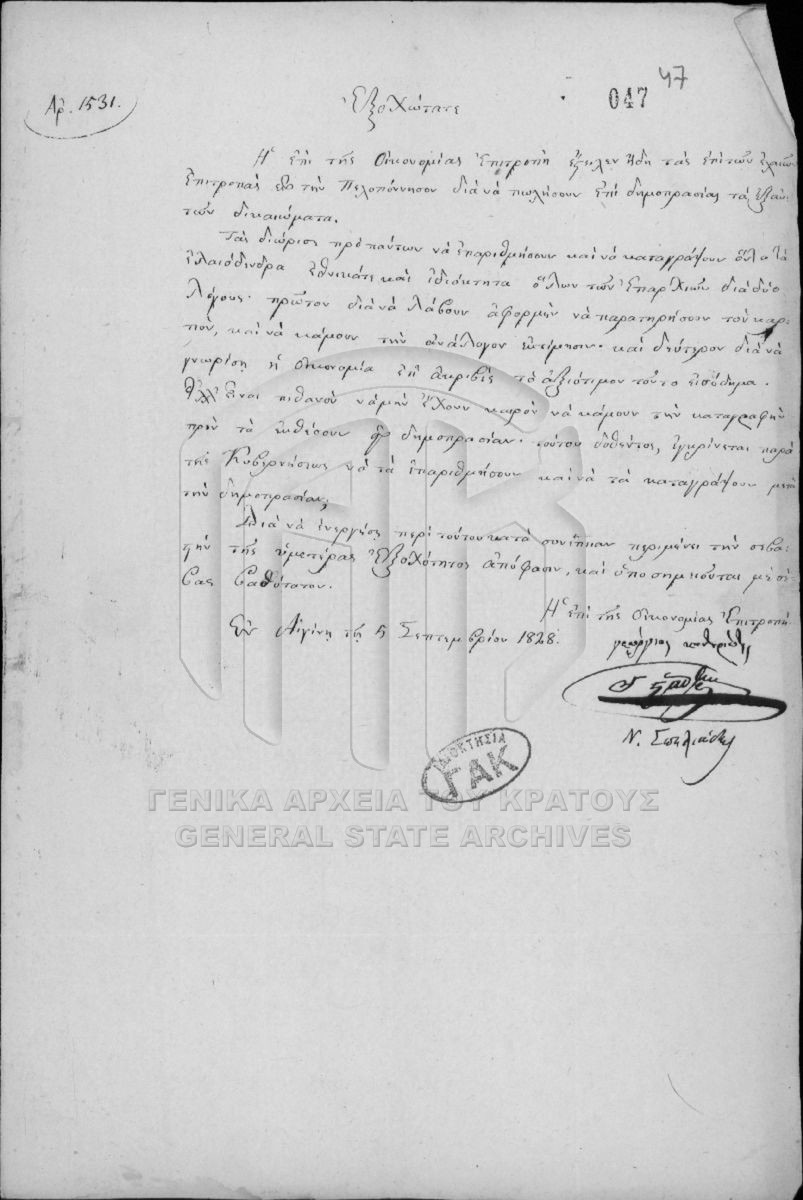 47
047
Ἀρ. 1531.
Ἐξοχώτατε
Ἡ ἐπὶ τῆς Οἰκονομίας Ἐπιτροπὴ ἔστειλεν ἤδη τὰς ἐπὶ τῶν ἐλαιῶν
Ἐπιτροπὰς εἰς τὴν Πελοπόννησον διὰ νὰ πωλήσουν ἐπὶ δημοπρασίας τὰ ἐξ αὐ-
τῶν δικαιώματα.
Τὰς διώρισε πρὸ πάντων νὰ ἐπαριθμήσουν καὶ νὰ καταγράψουν ὅλα τὰ
ἐλαιόδενδρα ἐθνικά τε καὶ ἰδιόκτητα ὅλων τῶν Ἐπαρχιῶν διὰ δύο
λόγους· πρῶτον διὰ νὰ λάβουν ἀφορμὴν νὰ παρατηρήσουν τὸν καρ-
πὸν, καὶ νὰ κάμουν τὴν ἀνάλογον ἐκτίμησιν· καὶ δεύτερον διὰ νὰ
γνωρίσῃ ἡ Οἰκονομία ἐπ' ἀκριβὲς τὸ ἀξιότιμον τοῦτο εἰσόδημα.
Ἀλλ' εἶναι πιθανὸν νὰ μὴν ἔχουν καιρὸν νὰ κάμουν τὴν καταγραφὴν
πρὶν τὰ ἐκθέσουν εἰς δημοπρασίαν· τούτου δοθέντος, ἐγκρίνεται παρὰ
τῆς Κυβερνήσεως νὰ τὰ ἐπαριθμήσουν καὶ νὰ τὰ καταγράψουν μετὰ
τὴν δημοπρασίαν;
Διὰ νὰ ἐνεργήσῃ περὶ τούτου κατὰ συνέπειαν περιμένει τὴν σεβα-
τὴν τῆς ὑμετέρας Ἐξοχότητος ἀπόφασιν, καὶ ὑποσημειοῦται μὲ σέ-
βας βαθύτατον.
Ἡ ἐπὶ τῆς Οἰκονομίας Ἐπιτροπὴ
Ἐν Αἰγίνῃ τῇ 5 Σεπτεμβρίου 1828.
γεώργιος
Ν. Σπηλιάδης
ΙΔΙΟΚΤΗΣΙΑ
ΓΑΚ
ΓΕΝΙΚΑ ΑΡΧΕΙΑ ΤΟΥ ΚΡΑΤΟΥΣ
GENERAL STATE ARCHIVES